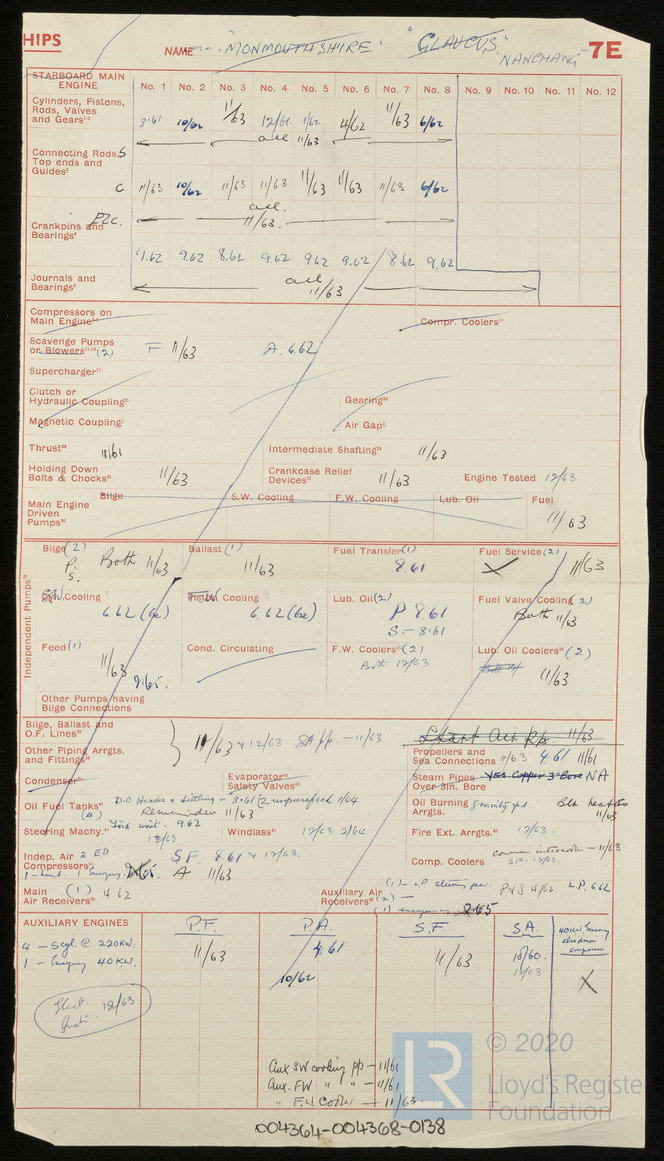 HIPS
NAME "MONMOUTHSHIRE" "GLAUCUS" "NANCHANG" 7E
STARBOARD MAIN ENGINE No. 1 No. 2 No. 3 No. 4 No. 5 No. 6 No. 7 No. 8 No. 9 No. 10 No. 11 No. 12
Cylinders, Pistons,
Rods, Valves
and Gears 8.61 10/62 11/63 12/61 1/62 4/62 11/63 6/62
all 11/63
Connecting Rods, S
Top ends and
Guides
C 11/63 10/62 11/63 11/63 11/63 11/63 11/63 6/62
all.
11/63.
Crankpins and
Bearings
9.62 9.62 8.62 9.62 9.62 9.62 8.62 9.62
Journals and
Bearings all
11/63
Compressors on
Main Engine Compr. Coolers
Scavenge Pumps
or Blowers (2) F 11/63 A. 6.62
Supercharger
Clutch or
Hydraulic Coupling Gearing
Magnetic Coupling Air Gap
Thrust 11/61 Intermediate Shafting 11/63
Holding Down
Bolts & Chocks 11/63 Crankcase Relief
Devices 11/63 Engine Tested 12/63.
Main Engine
Driven
Pumps Bilge S.W. Cooling F.W. Cooling Lub. Oil Fuel
11/63
Independent Pumps
Bilge (2) P. S. Both 11/63 Ballast (1) 11/63 Fuel Transfer (1) 8.61 Fuel Service (2) 11/63
Cooling 6.62 Cooling 6.62 Lub. Oil (2) P 8.61
S. - 8.61 Fuel Valve Cooling (2) Both 11/63
Feed (1) 11/63 Cond. Circulating F.W. Coolers (2)
Both 12/63 Lub. Oil Coolers (2)
11/63
Other Pumps having
Bilge Connections
Bilge, Ballast and
O.F. Lines
Other Piping Arrgts.
and Fittings 11/63 & 12/63 SA pp. - 11/63
Start Air Rp. 11/63
Propellers and
Sea Connections 11/63 4.61 11/61
Condenser Evaporator
Safety Valves Steam Pipes
Over 3in. Bore YES Copper 3" Bore NA
Oil Fuel Tanks (4) D.O Header & Settling - 8.61
Remainder 11/63
Oil Burning
Arrgts. 11/63
Steering Machy. 9.62
12/63 Windlass 12/63 2/64 Fire Ext. Arrgts. 12/63.
Indep. Air
Compressors S.F. 8.61 & 12/63.
A 11/63 Comp. Coolers - 11/63
S.F. 12/63.
Main
Air Receivers (1) 4.62 Auxiliary Air
Receivers P&S 4/62 L.P. 6.62
(1) emergency 2.65
AUXILIARY ENGINES P.F. P.A. S.F. S.A.
4 - @ 220KW. 11/63 4.61 11/63 10/60.
1 - Emergency 40KW. 10/62 11/63
40KW Emerg
12/63
Aux SW cooling pp - 11/61
Aux. FW " " - 11/61
" F.W Cooler - 11/63.
LR © 2020
Lloyd's Register
Foundation
004364-004368-0138